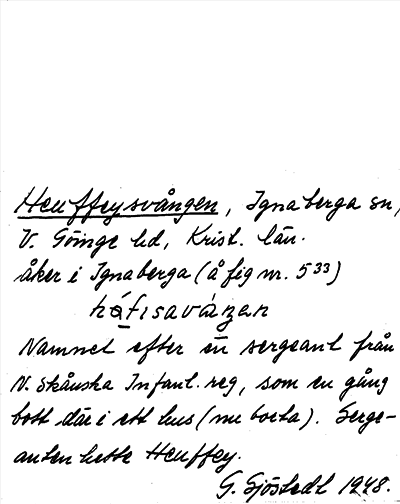 Heuffeysvången, Ignaberga sn,
V. Göinge hd, Krist. län.
åker i Ignaberga (å fig nr. 5³³)
håfisavåŋan
Namnet efter en sergeant från
N. Skånska Infant. reg, som en gång
bott där i ett hus (nu borta). Serge-
anten hette Heuffey.
G. Sjöstedt 1948.